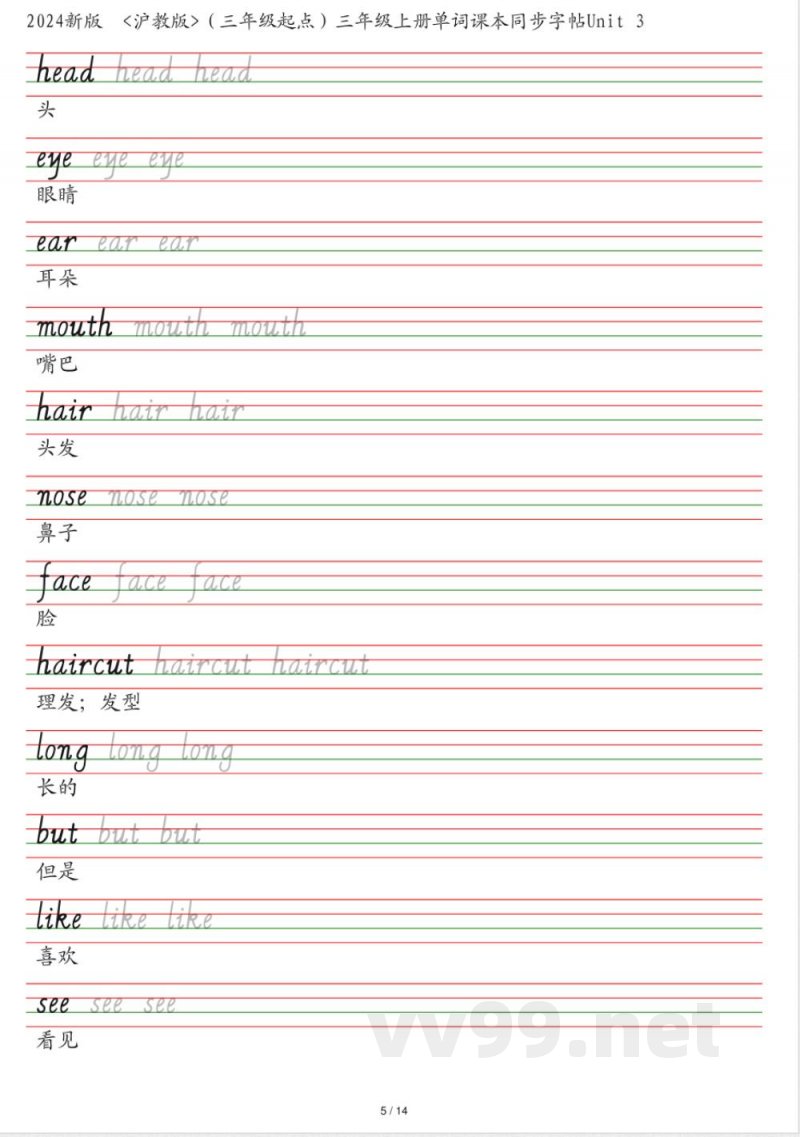 2024新版 <沪教版>(三年级起点)三年级上册单词课本同步字帖Unit 3
head head head
头
eye eye eye
眼睛
ear ear ear
耳朵
mouth mouth mouth
嘴巴
hair hair hair
头发
nose nose nose
鼻子
face face face
脸
haircut haircut haircut
理发；发型
long long long
长的
but but but
但是
like like like
喜欢
see see see
看见
vv99.net
5 / 14